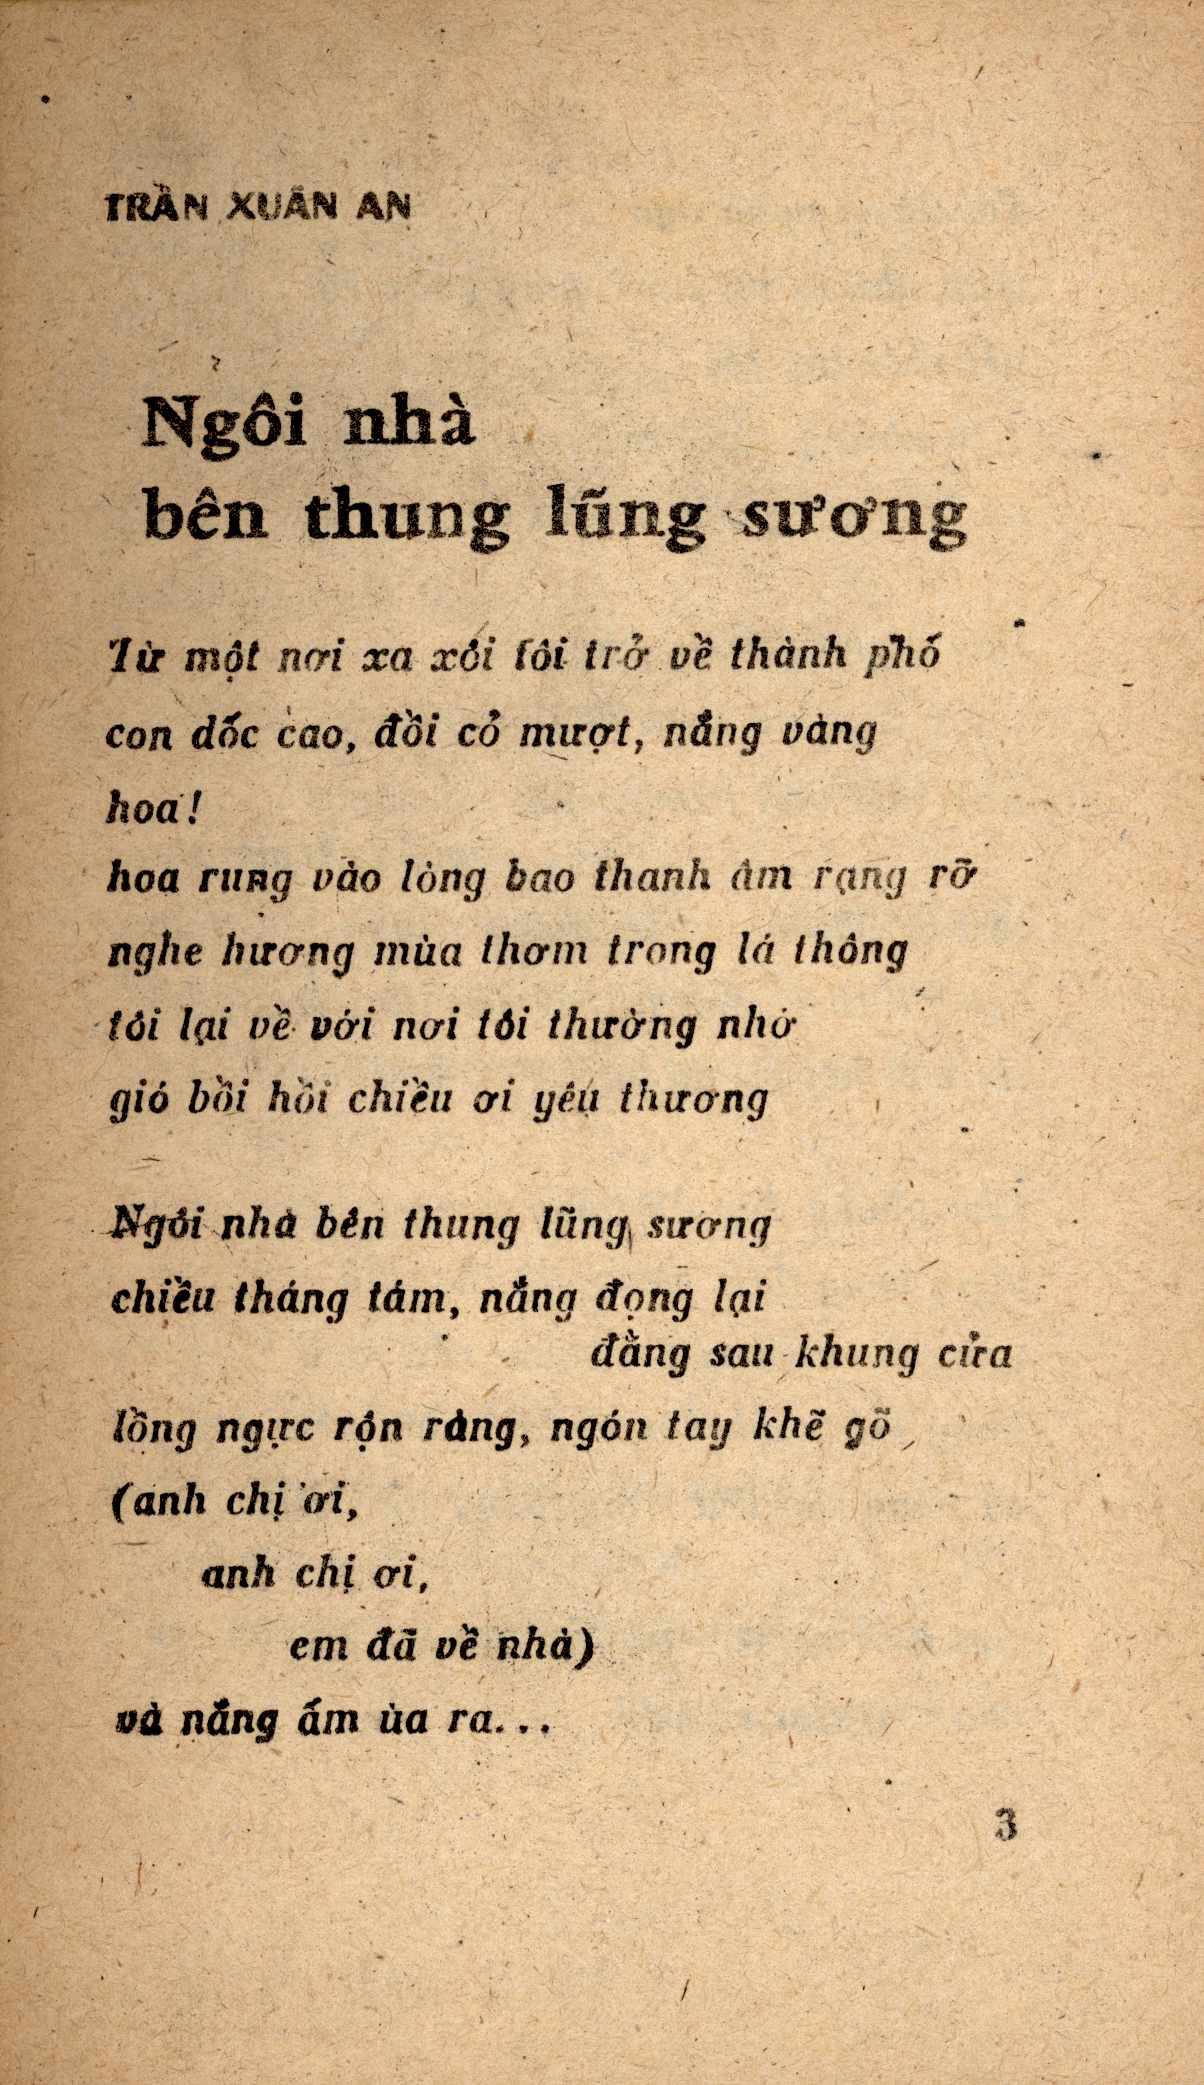 TRẦN XUÂN AN
Ngôi nhà
bên thung lũng sương
Từ một nơi xa xôi tôi trở về thành phố
con dốc cao, đồi cỏ mượt, nắng vàng
hoa!
hoa rung vào lòng bao thanh âm rạng rỡ
nghe hương mùa thơm trong lá thông
tôi lại về với nơi tôi thường nhớ
gió bồi hồi chiều ơi yêu thương
Ngôi nhà bên thung lũng sương
chiều tháng tám, nắng đọng lại
đằng sau khung cửa
lồng ngực rộn ràng, ngón tay khẽ gõ
(anh chị ơi,
anh chị ơi,
em đã về nhà)
và nắng ấm ùa ra...
3